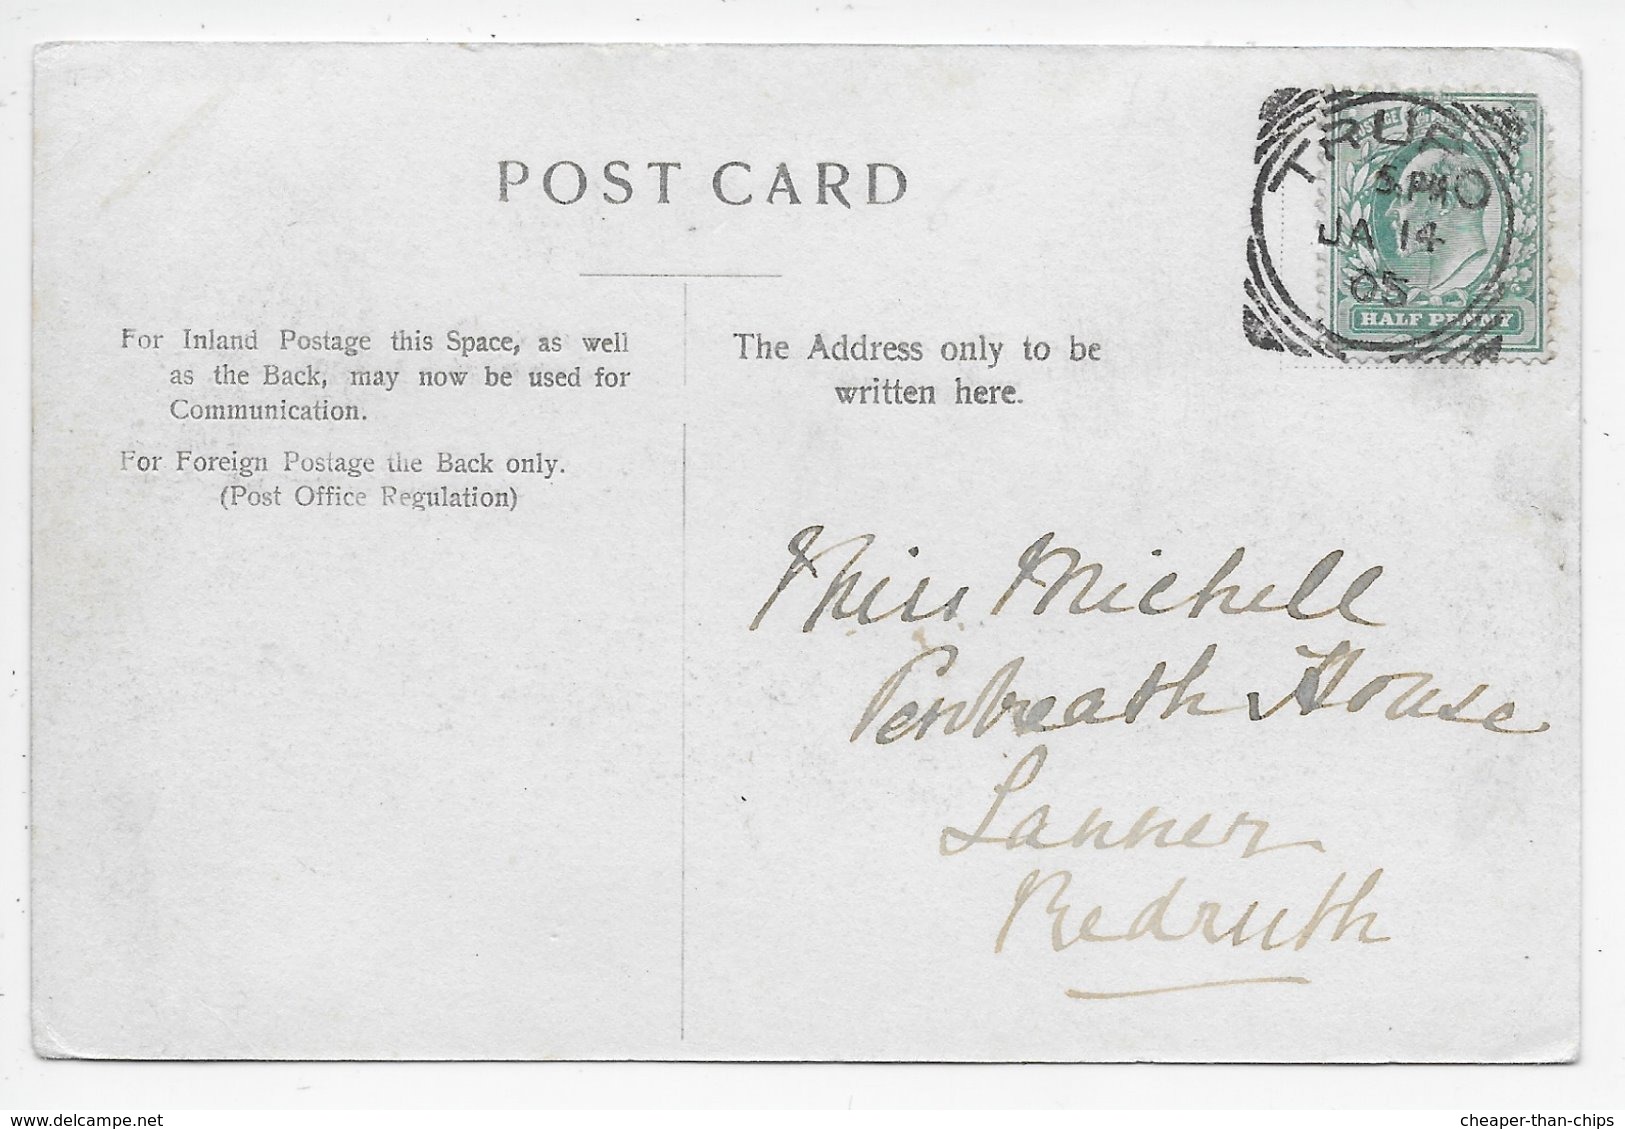 POST CARD
For Inland Postage this Space, as well
as the Back, may now be used for
Communication.
For Foreign Postage the Back only.
(Post Office Regulation)
The Address only to be
written here.
TRURO
5 PM
JA 14
05
POSTAGE
HALF PENNY
Miss Michell
Penbreath House
Lanner
Redruth
delcampe.net
cheaper-than-chips